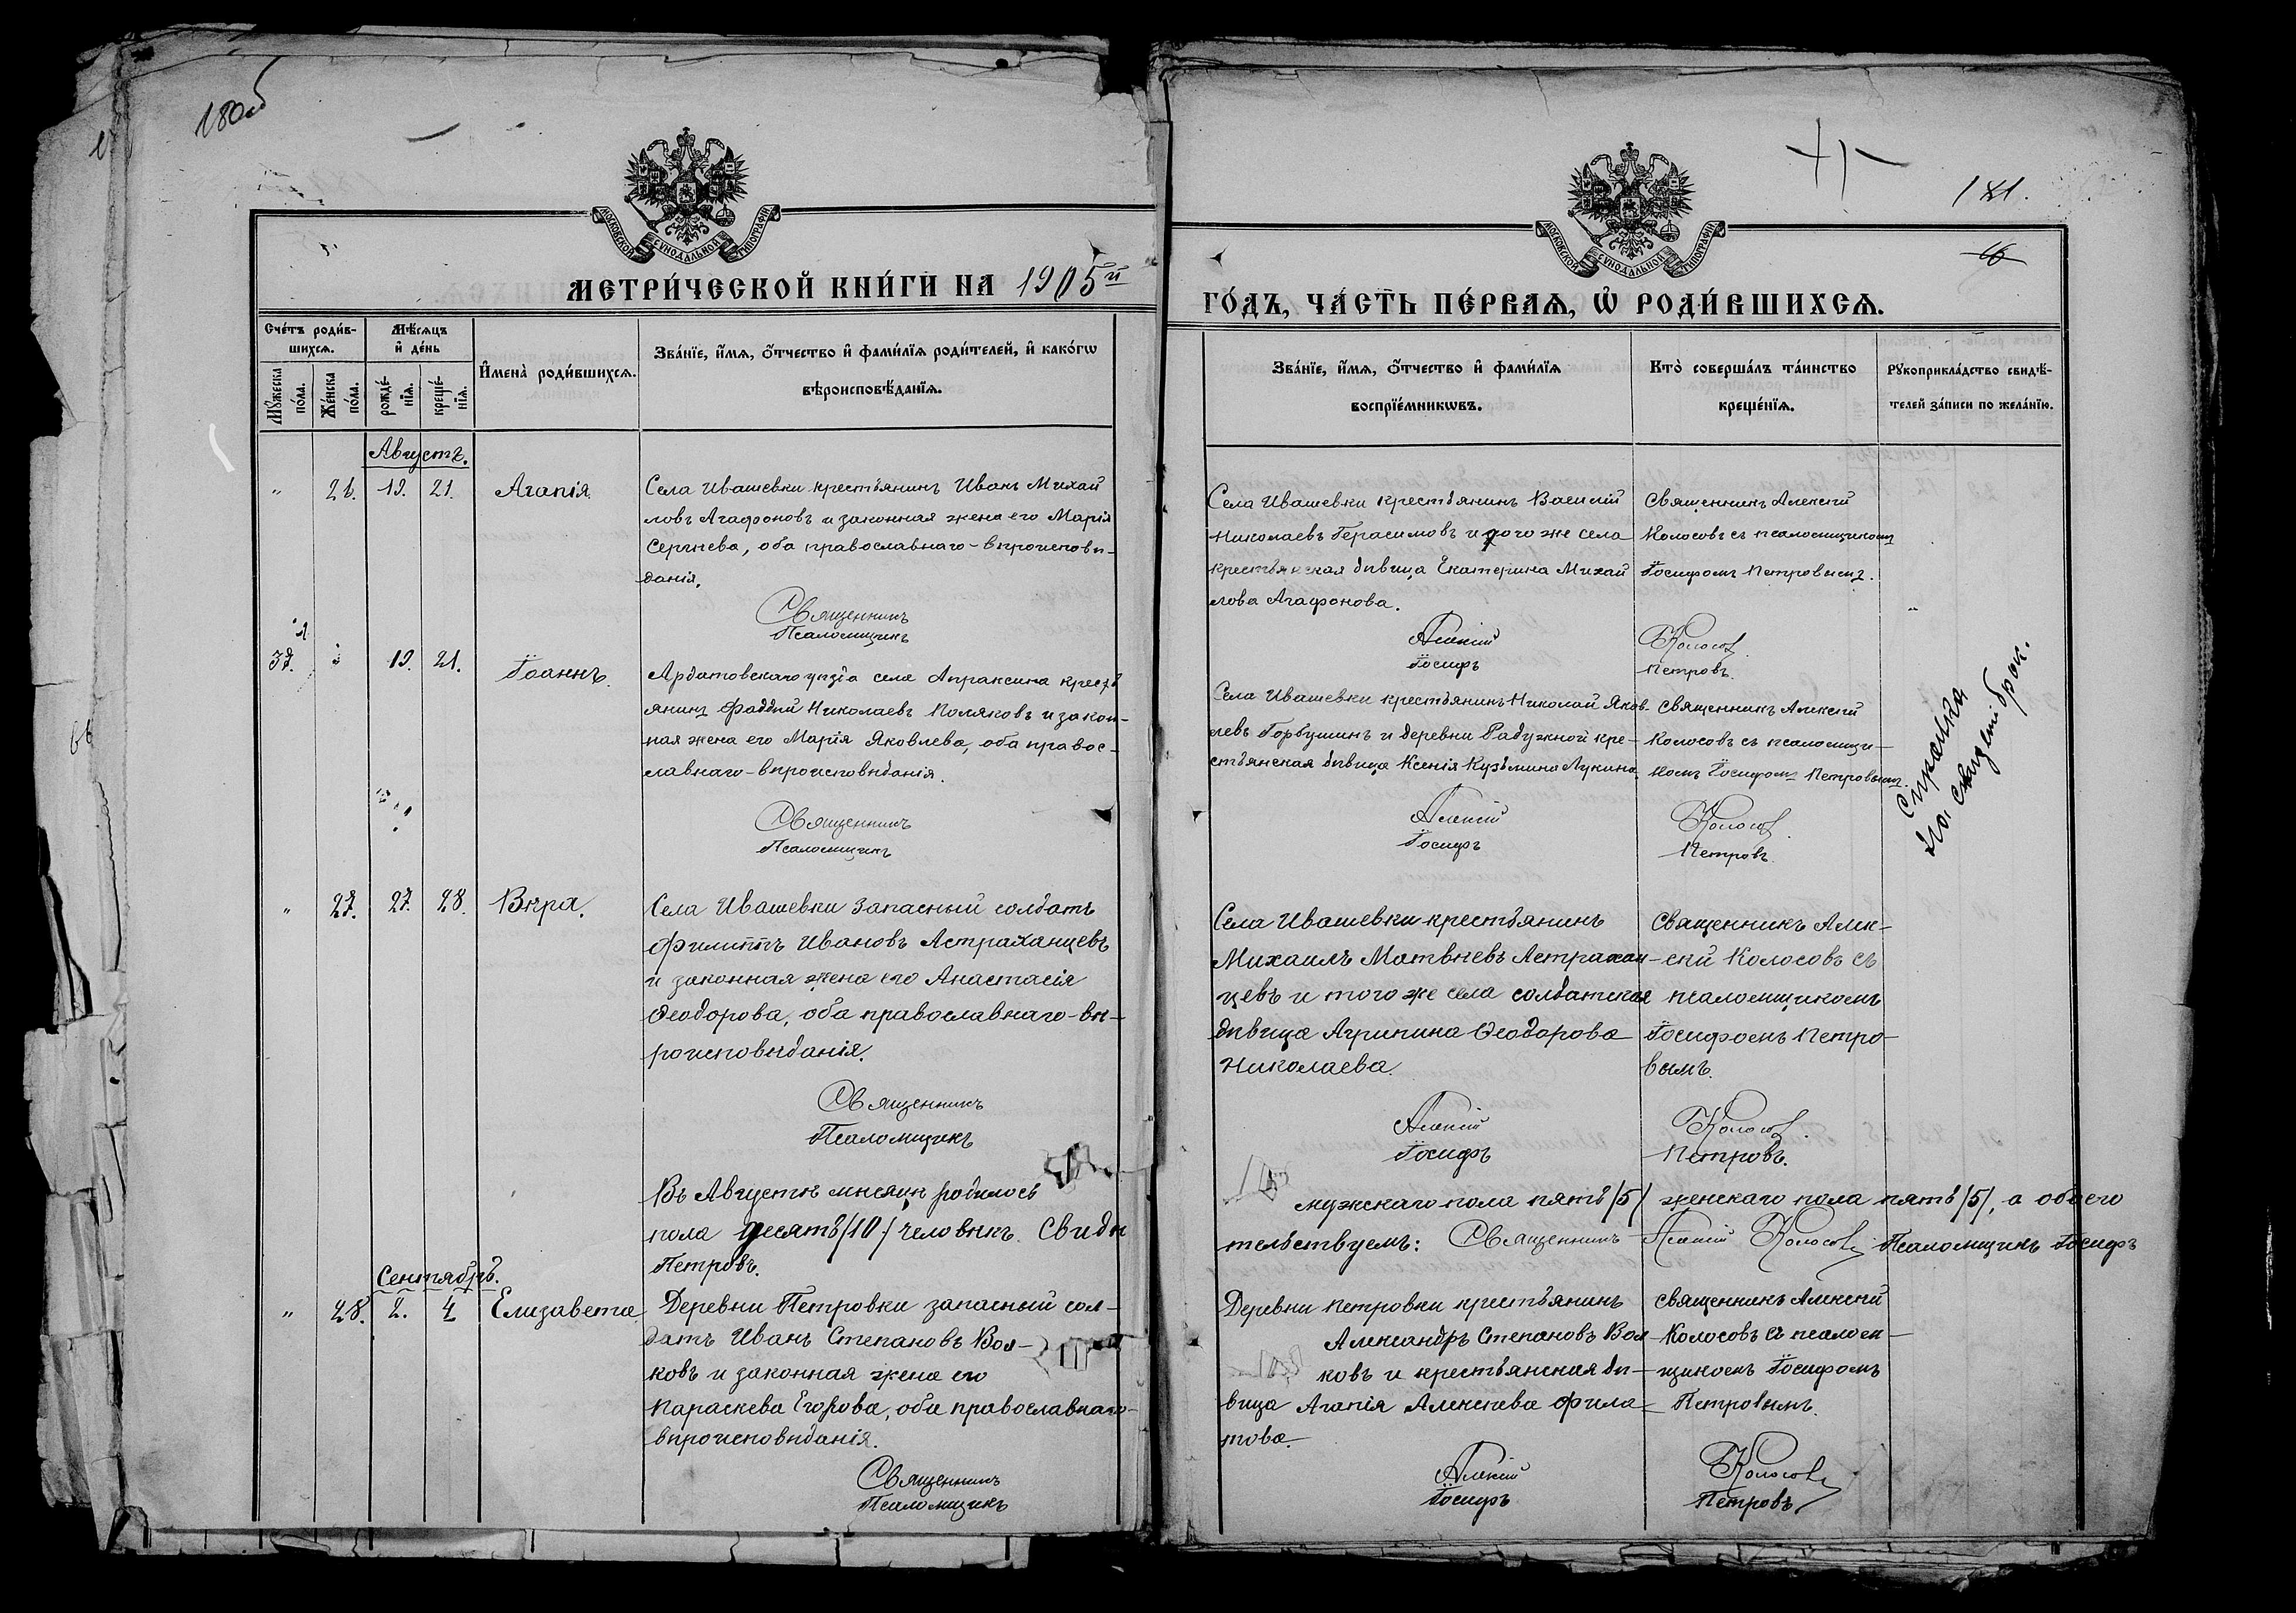 180 об
МОСКОВСКОЙ СѴНОДАЛЬНОЙ ТИПОГРАФІИ
МЕТРИ́ЧЕСКОЙ КНИ́ГИ НА 1905й
Сче́тъ роди́в-
шихсѧ.
Мꙋ́жеска по́ла.
Же́нска по́ла.
Мѣ́сѧцъ
и҆ де́нь
рожде́-
нїѧ.
креще́-
нїѧ.
И҆мена̀ роди́вшихсѧ.
Зва́нїе, и҆́мѧ, ѻ҆́тчество и҆ фами́лїѧ роди́телей, и҆ како́гѡ
вѣроисповѣ́данїѧ.
Августъ.
" 26. 19. 21. Агапія
Села Ивашевки крестьянинъ Иванъ Михай
ловъ Агафоновъ и законная жена его Марія
Сергѣева, оба православнаго-вѣроисповѣ-
данія.
Священникъ
Псаломщикъ
37. " 19. 21. Іоаннъ.
Ардатовскаго уѣзда села Апраксина кресть
янинъ Фаддѣй Николаевъ Поляковъ и закон-
ная жена его Марія Яковлева, оба правос-
лавнаго-вѣроисповѣданія.
Священникъ
Псаломщикъ
" 27. 27. 28. Вѣра.
Села Ивашевки запасный солдатъ
Филиппъ Ивановъ Астраханцевъ
и законная жена его Анастасія
Ѳеодорова, оба православнаго-вѣ-
роисповѣданія.
Священникъ
Псаломщикъ
Въ Августѣ мѣсяцѣ родилось
пола десять /10/ человѣкъ. Свидѣ
Петровъ.
Сентябрь.
" 28. 2. 4 Елизавета
Деревни Петровки запасный сол-
датъ Иванъ Степановъ Вол-
ковъ и законная жена его
Параскева Егорова, оба православнаго-
вѣроисповѣданія.
Священникъ
Псаломщикъ
181.
МОСКОВСКОЙ СѴНОДАЛЬНОЙ ТИПОГРАФІИ
ГО́ДЪ, ЧА́СТЬ ПЕ́РВАѦ, Ѡ҆ РОДИ́ВШИХСѦ.
Зва́нїе, и҆́мѧ, ѻ҆́тчество и҆ фами́лїѧ
воспрїе́мникѡвъ.
Кто̀ соверша́лъ та́инство
креще́нїѧ.
Рꙋкоприкла́дство свидѣ́-
телей за́писи по жела́нїю.
Села Ивашевки крестьянинъ Василій
Николаевъ Герасимовъ и того же села
крестьянская дѣвица Екатерина Михай
лова Агафонова.
Священникъ Алексій
Колосовъ съ псаломщикомъ
Іосифомъ Петровымъ.
Алексій Колосовъ.
Іосифъ Петровъ.
Села Ивашевки крестьянинъ Николай Яков-
левъ Горбушинъ и деревни Радужной кре-
стьянская дѣвица Ксенія Кузьмина Лукина.
Священникъ Алексій
Колосовъ съ псаломщи-
комъ Іосифомъ Петровымъ.
Справка
брак.
Алексій Колосовъ.
Іосифъ Петровъ.
Села Ивашевки крестьянинъ
Михаилъ Матвѣевъ Астрахан-
цевъ и того же села солдатская
дѣвица Агрипина Ѳеодорова
Николаева.
Священникъ Алек-
сій Колосовъ съ
псаломщикомъ
Іосифомъ Петро-
вымъ.
Алексій Колосовъ.
Іосифъ Петровъ.
мужскаго пола пять /5/ женскаго пола пять /5/, а обоего
тельствуемъ: Священникъ Алексій Колосовъ Псаломщикъ Іосифъ
Деревни Петровки крестьянинъ
Александръ Степановъ Вол-
ковъ и крестьянская дѣ-
вица Агапія Алексѣева Фила-
това.
Священникъ Алексій
Колосовъ съ псалом-
щикомъ Іосифомъ
Петровымъ.
Алексій Колосовъ
Іосифъ Петровъ